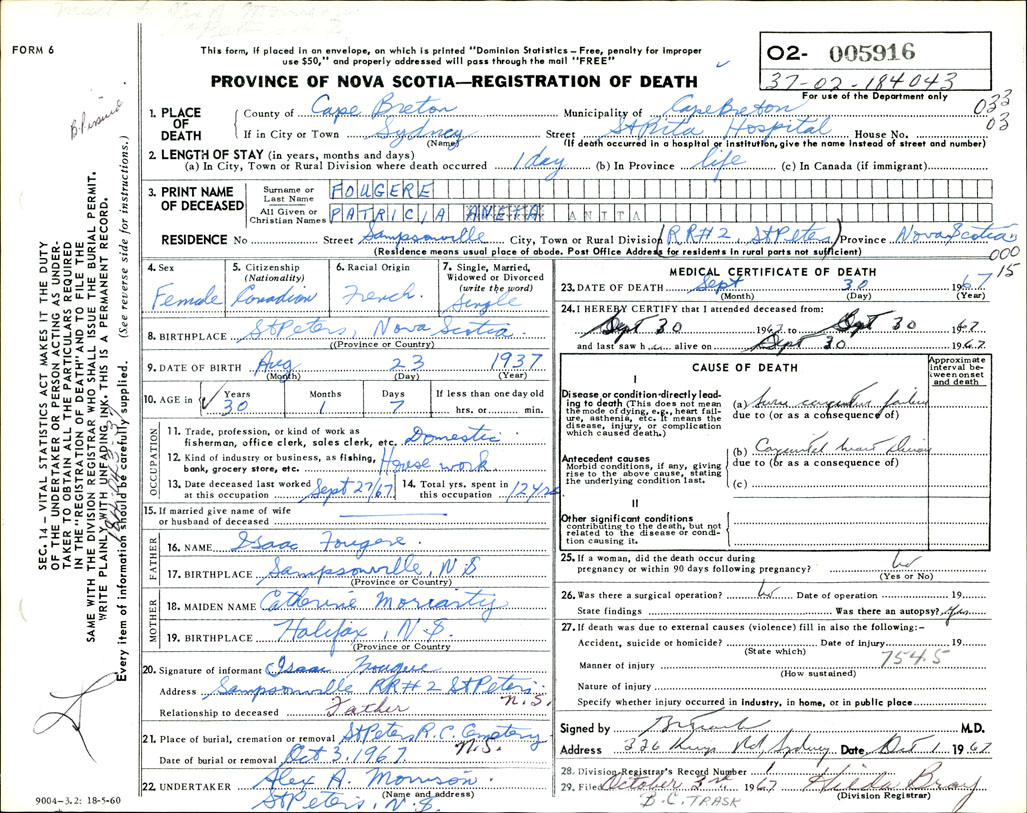 FORM 6
This form, if placed in an envelope, on which is printed "Dominion Statistics – Free, penalty for improper
use $50," and properly addressed will pass through the mail "FREE"
PROVINCE OF NOVA SCOTIA—REGISTRATION OF DEATH
O2- 005916
37-02-184043
For use of the Department only
033
03
1. PLACE OF DEATH
County of Cape Breton Municipality of Cape Breton
If in City or Town Sydney Street St Rita Hospital House No.
(Name) (If death occurred in a hospital or institution, give the name instead of street and number)
2. LENGTH OF STAY (in years, months and days)
(a) In City, Town or Rural Division where death occurred 1 day (b) In Province life (c) In Canada (if immigrant)
3. PRINT NAME OF DECEASED
Surname or Last Name FOUGERE
All Given or Christian Names PATRICIA ANITA
RESIDENCE No Street Sampsonville City, Town or Rural Division (RR#2, St Peters) Province Nova Scotia
(Residence means usual place of abode. Post Office Address for residents in rural parts not sufficient)
000
15
4. Sex Female
5. Citizenship (Nationality) Canadian
6. Racial Origin French.
7. Single, Married, Widowed or Divorced (write the word) Single
8. BIRTHPLACE St Peters, Nova Scotia
(Province or Country)
9. DATE OF BIRTH Aug 23 1937
(Month) (Day) (Year)
10. AGE in Years 30 Months 1 Days 7 If less than one day old hrs. or min.
OCCUPATION
11. Trade, profession, or kind of work as fisherman, office clerk, sales clerk, etc. Domestic
12. Kind of industry or business, as fishing, bank, grocery store, etc. House work
13. Date deceased last worked at this occupation Sept 27/67
14. Total yrs. spent in this occupation 12 yrs
15. If married give name of wife or husband of deceased
FATHER
16. NAME Isaac Fougere
17. BIRTHPLACE Sampsonville, N S
(Province or Country)
MOTHER
18. MAIDEN NAME Catherine Moriarty
19. BIRTHPLACE Halifax, N.S.
(Province or Country)
20. Signature of informant Isaac Fougere
Address Sampsonville RR#2 St Peters N.S.
Relationship to deceased Father
21. Place of burial, cremation or removal St Peters R.C. Cemetery N.S.
Date of burial or removal Oct 3, 1967
22. UNDERTAKER Alex A. Morrison.
(Name and address)
St Peters, N.S.
MEDICAL CERTIFICATE OF DEATH
23. DATE OF DEATH Sept 30 1967
(Month) (Day) (Year)
24. I HEREBY CERTIFY that I attended deceased from:
Sept 30 1967 to Sept 30 1967
and last saw h alive on Sept 30 1967.
CAUSE OF DEATH
Approximate interval between onset and death
I
Disease or condition directly leading to death (This does not mean the mode of dying, e.g., heart failure, asthenia, etc. It means the disease, injury, or complication which caused death.)
(a) failure
due to (or as a consequence of)
Antecedent causes
Morbid conditions, if any, giving rise to the above cause, stating the underlying condition last.
(b) Congenital heart Disease
due to (or as a consequence of)
(c)
II
Other significant conditions contributing to the death, but not related to the disease or condition causing it.
25. If a woman, did the death occur during pregnancy or within 90 days following pregnancy? No
(Yes or No)
26. Was there a surgical operation? No Date of operation 19
State findings Was there an autopsy? Yes
27. If death was due to external causes (violence) fill in also the following:–
Accident, suicide or homicide? Date of injury 19
(State which)
754.5
Manner of injury
(How sustained)
Nature of injury
Specify whether injury occurred in industry, in home, or in public place
Signed by M.D.
Address 336 Kings Rd, Sydney Date Oct 1 1967
28. Division Registrar's Record Number 1
29. Filed October 3rd 1967 Hilda Bray
(Division Registrar)
B.C. TRASK
SEC. 14 – VITAL STATISTICS ACT MAKES IT THE DUTY
OF THE UNDERTAKER OR PERSON ACTING AS UNDERTAKER
TO OBTAIN ALL THE PARTICULARS REQUIRED
IN THE "REGISTRATION OF DEATH" AND TO FILE THE
SAME WITH THE DIVISION REGISTRAR WHO SHALL ISSUE THE BURIAL PERMIT.
WRITE PLAINLY WITH UNFADING INK. THIS IS A PERMANENT RECORD.
Every item of information should be carefully supplied. (See reverse side for instructions.)
9004–3.2: 18-5-60